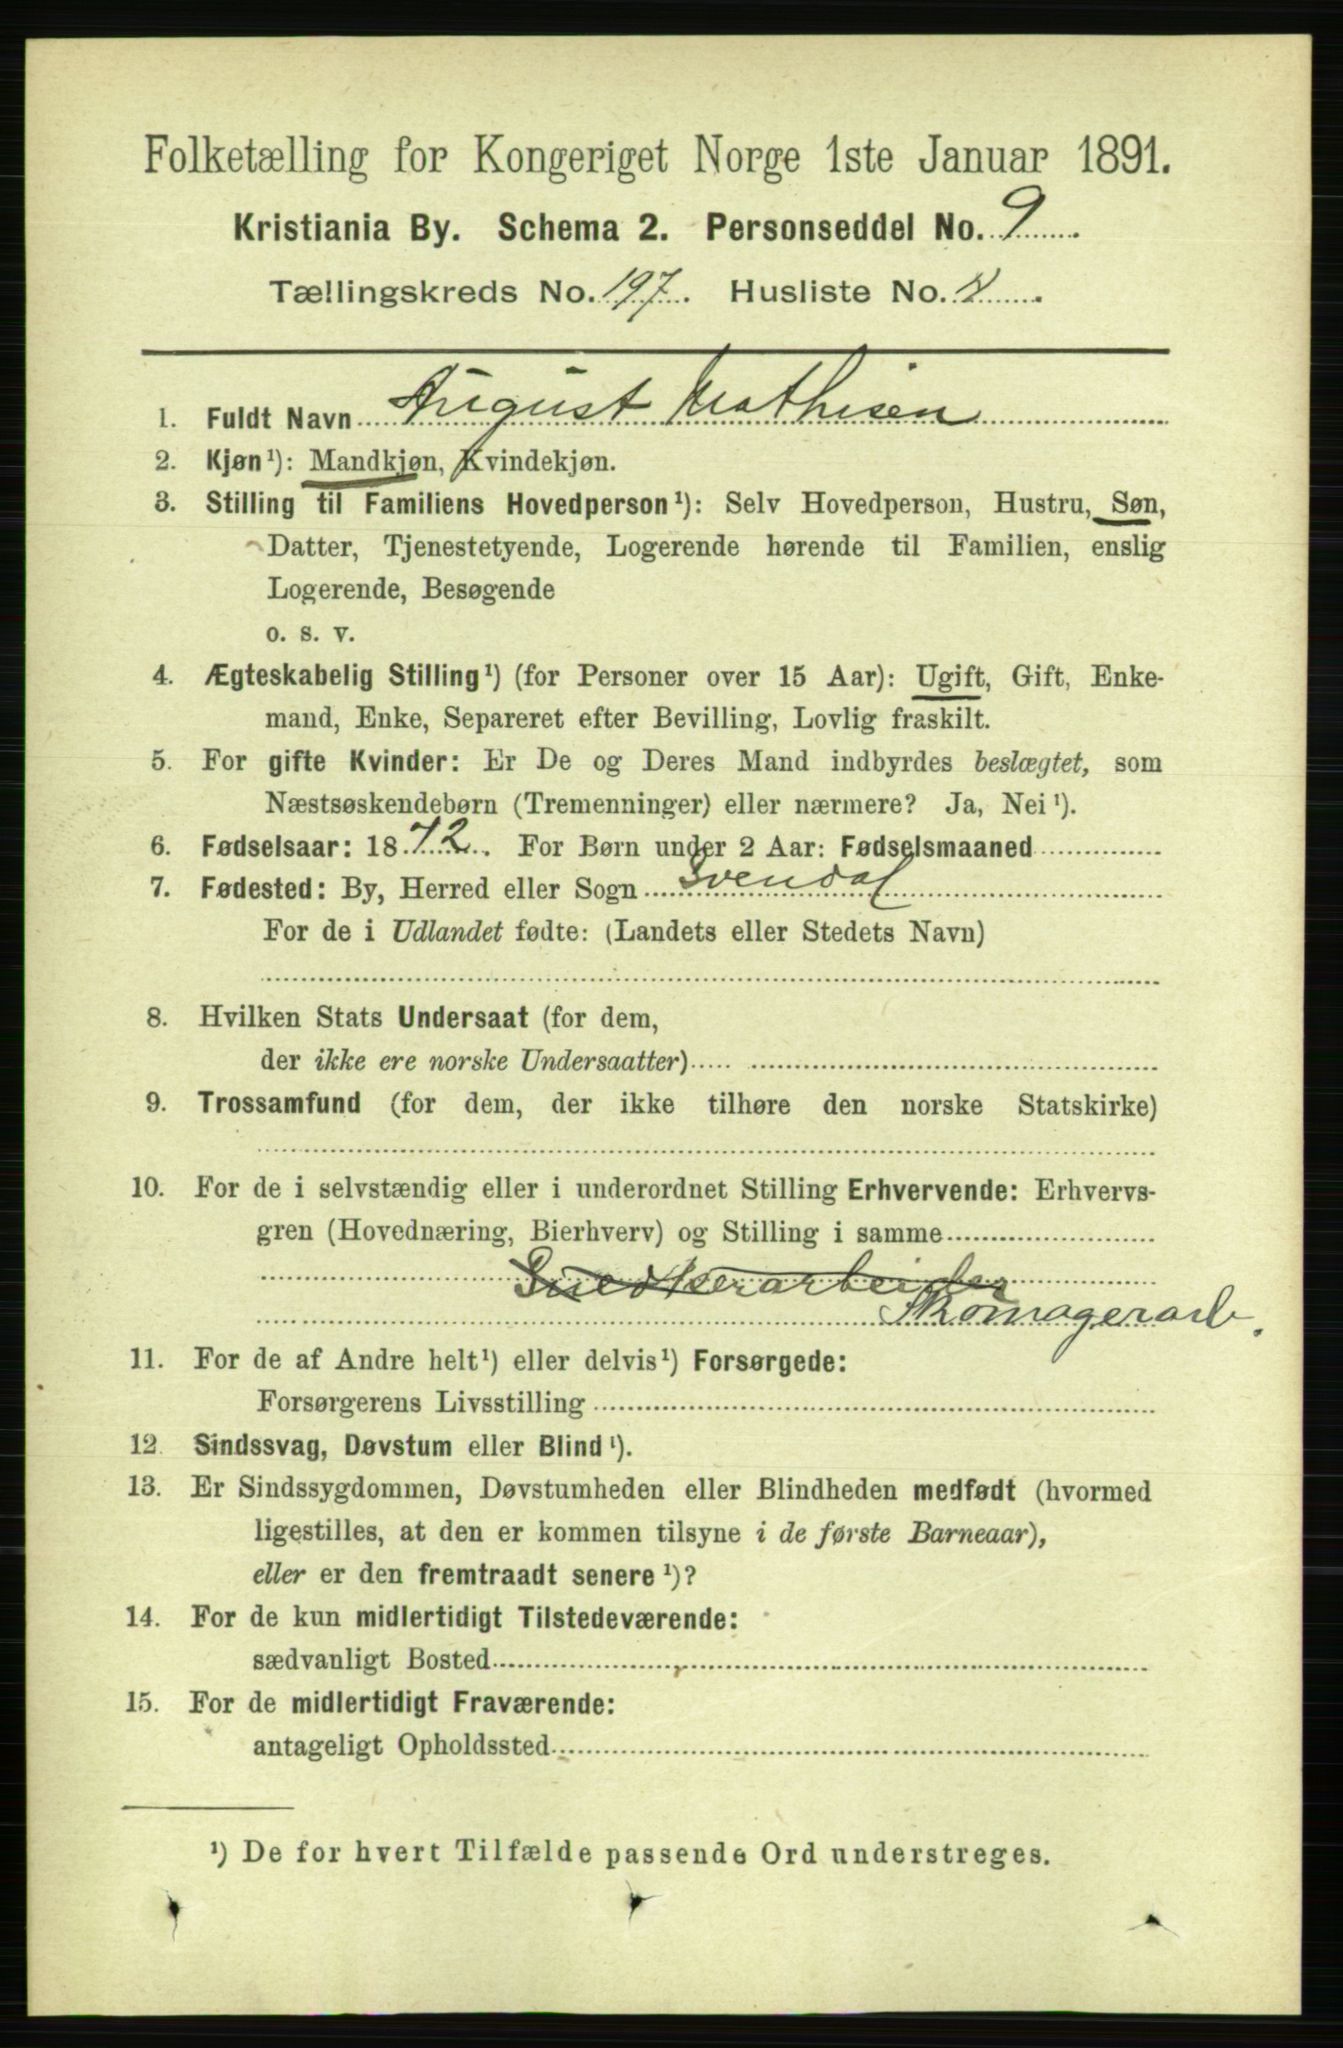 Folketælling for Kongeriget Norge 1ste Januar 1891.
Kristiania By. Schema 2. Personseddel No. 9
Tællingskreds No. 197. Husliste No. 8
1. Fuldt Navn August Mathisen
2. Kjøn¹): Mandkjøn, Kvindekjøn.
3. Stilling til Familiens Hovedperson¹): Selv Hovedperson, Hustru, Søn,
Datter, Tjenestetyende, Logerende hørende til Familien, enslig
Logerende, Besøgende
o. s. v.
4. Ægteskabelig Stilling¹) (for Personer over 15 Aar): Ugift, Gift, Enke-
mand, Enke, Separeret efter Bevilling, Lovlig fraskilt.
5. For gifte Kvinder: Er De og Deres Mand indbyrdes beslægtet, som
Næstsøskendebørn (Tremenninger) eller nærmere? Ja, Nei¹).
6. Fødselsaar: 1872. For Børn under 2 Aar: Fødselsmaaned
7. Fødested: By, Herred eller Sogn Svendal
For de i Udlandet fødte: (Landets eller Stedets Navn)
8. Hvilken Stats Undersaat (for dem,
der ikke ere norske Undersaatter)
9. Trossamfund (for dem, der ikke tilhøre den norske Statskirke)
10. For de i selvstændig eller i underordnet Stilling Erhvervende: Erhvervs-
gren (Hovednæring, Bierhverv) og Stilling i samme
Snedkerarbeider
Skomagerarb.
11. For de af Andre helt¹) eller delvis¹) Forsørgede:
Forsørgerens Livsstilling
12. Sindssvag, Døvstum eller Blind¹).
13. Er Sindssygdommen, Døvstumheden eller Blindheden medfødt (hvormed
ligestilles, at den er kommen tilsyne i de første Barneaar),
eller er den fremtraadt senere¹)?
14. For de kun midlertidigt Tilstedeværende:
sædvanligt Bosted
15. For de midlertidigt Fraværende:
antageligt Opholdssted
¹) De for hvert Tilfælde passende Ord understreges.